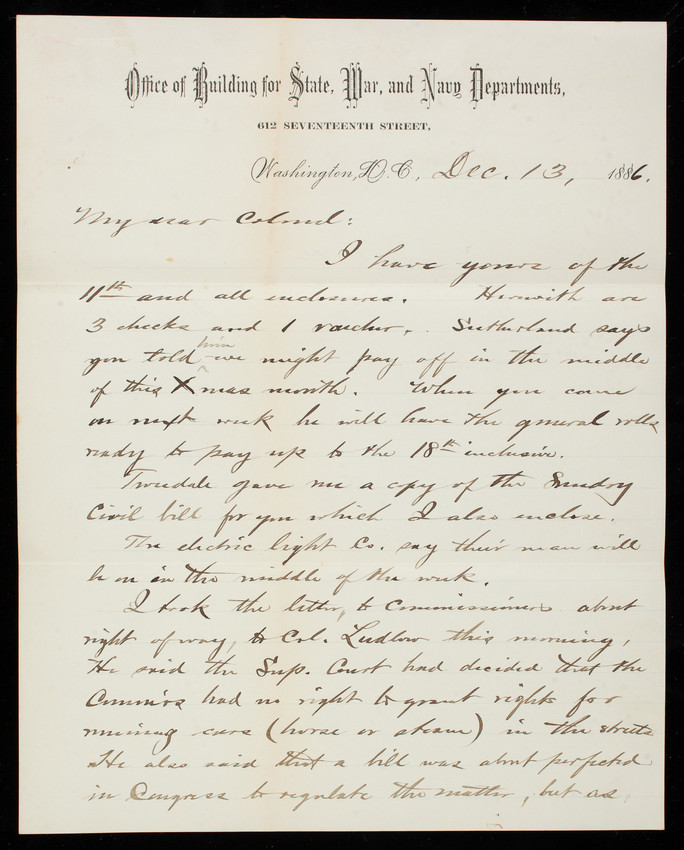 Office of Building for State, War, and Navy Departments,
612 SEVENTEENTH STREET,
Washington, D.C., Dec. 13, 1886.
My dear Colonel:
I have yours of the
11th and all enclosures. Herewith are
3 checks and 1 voucher. Sutherland says
you told him we might pay off in the middle
of this Xmas month. When you come
on next week he will have the general rolls
ready to pay up to the 18th inclusive.
Tweedale gave me a copy of the Sundry
Civil bill for you which I also enclose.
The electric light Co. say their man will
be on in the middle of the week.
I took the letter, to Commissioners about
right of way, to Col. Ludlow this morning,
He said the Sup. Court had decided that the
Commirs had no right to grant rights for
running cars (horse or steam) in the streets
He also said that a bill was about perfected
in Congress to regulate the matter, but as